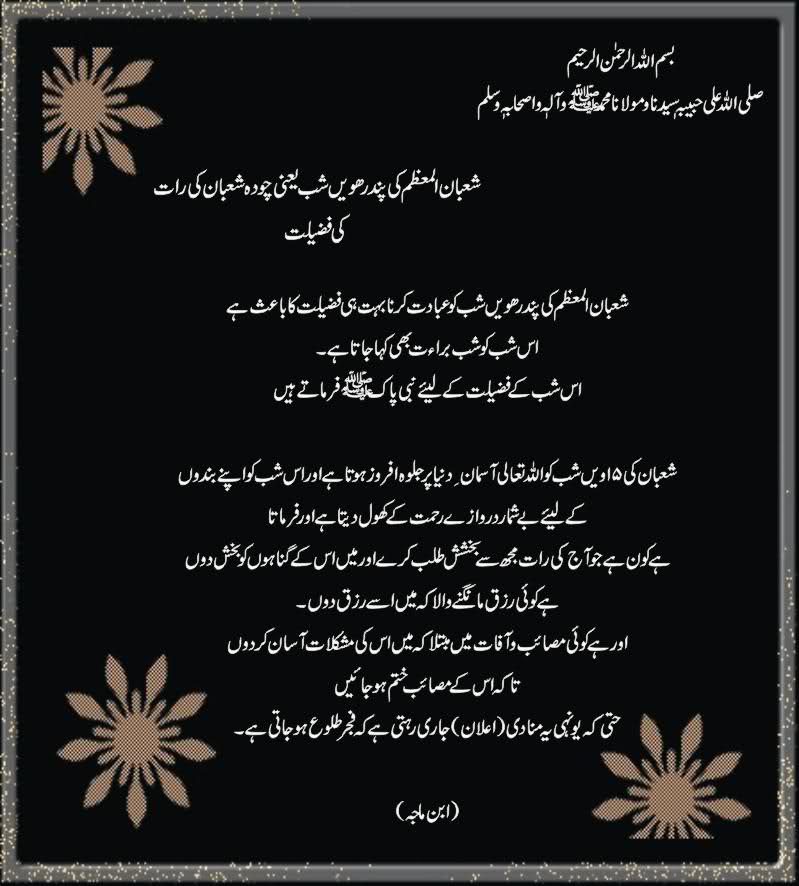 بسم اللہ الرحمٰن الرحیم
صلی اللہ علی حبیبہٖ سیدنا و مولانا محمدﷺ وآلہٖ واصحابہٖ وسلم
شعبان المعظم کی پندرھویں شب یعنی چودہ شعبان کی رات
کی فضیلت
شعبان المعظم کی پندرھویں شب کو عبادت کرنا بہت ہی فضیلت کا باعث ہے
اس شب کو شب براءت بھی کہا جاتا ہے۔
اس شب کے فضیلت کے لیئے نبی پاکﷺ فرماتے ہیں
شعبان کی ۱۵ویں شب کو اللہ تعالی آسمان ِ دنیا پر جلوہ افروز ہوتا ہے اور اس شب کو اپنے بندوں
کے لیئے بے شمار دروازے رحمت کے کھول دیتا ہے اور فرماتا
ہے کون ہے جو آج کی رات مجھ سے بخشش طلب کرے اور میں اس کے گناہوں کو بخش دوں
ہے کوئی رزق مانگنے والا کہ میں اسے رزق دوں۔
اور ہے کوئی مصائب و آفات میں مبتلا کہ میں اس کی مشکلات آسان کردوں
تاکہ اس کے مصائب ختم ہوجائیں
حتی کہ یونہی یہ منادی (اعلان) جاری رہتی ہے کہ فجر طلوع ہوجاتی ہے۔
(ابن ماجہ)